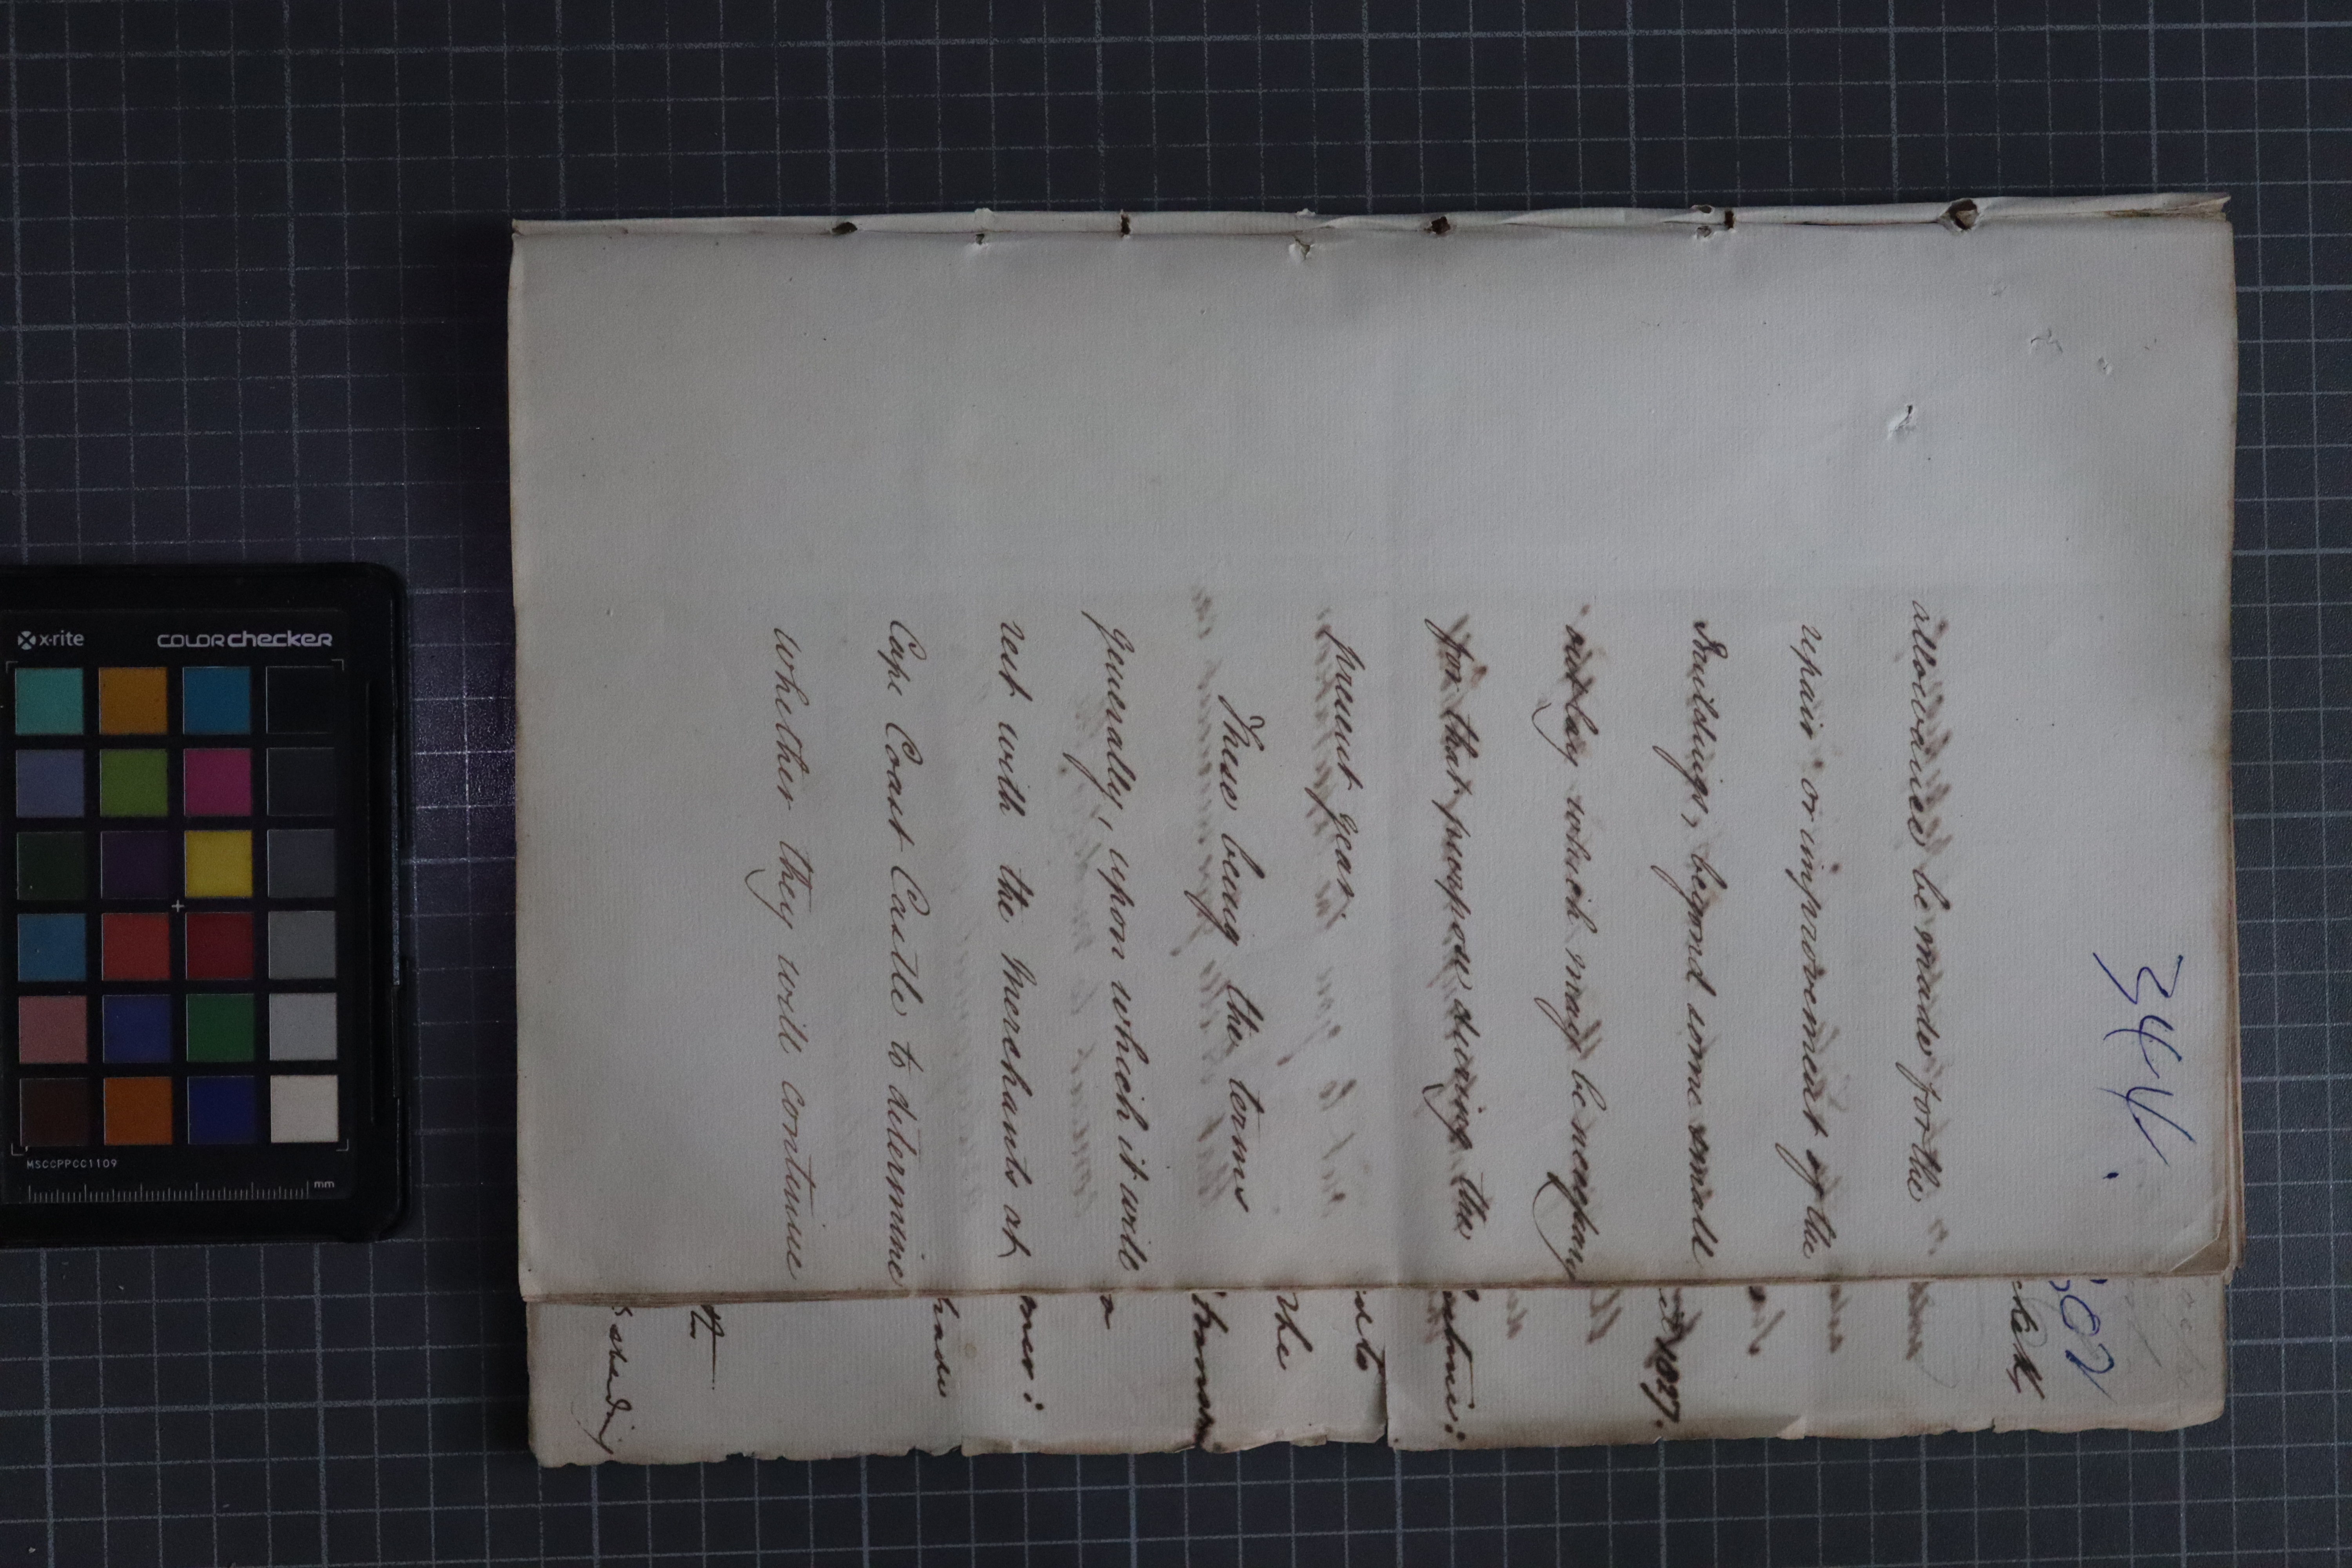 344.
allowance be made for the
repair or improvement of the
Buildings, beyond some small
outlay which may be necessary
for that purpose during the
present year.
These being the terms
generally, upon which it will
rest with the Merchants at
Cape Coast Castle to determine
whether they will continue
502
1827.
the
x-rite
COLORchecker
MSCCPPCC1109
mm